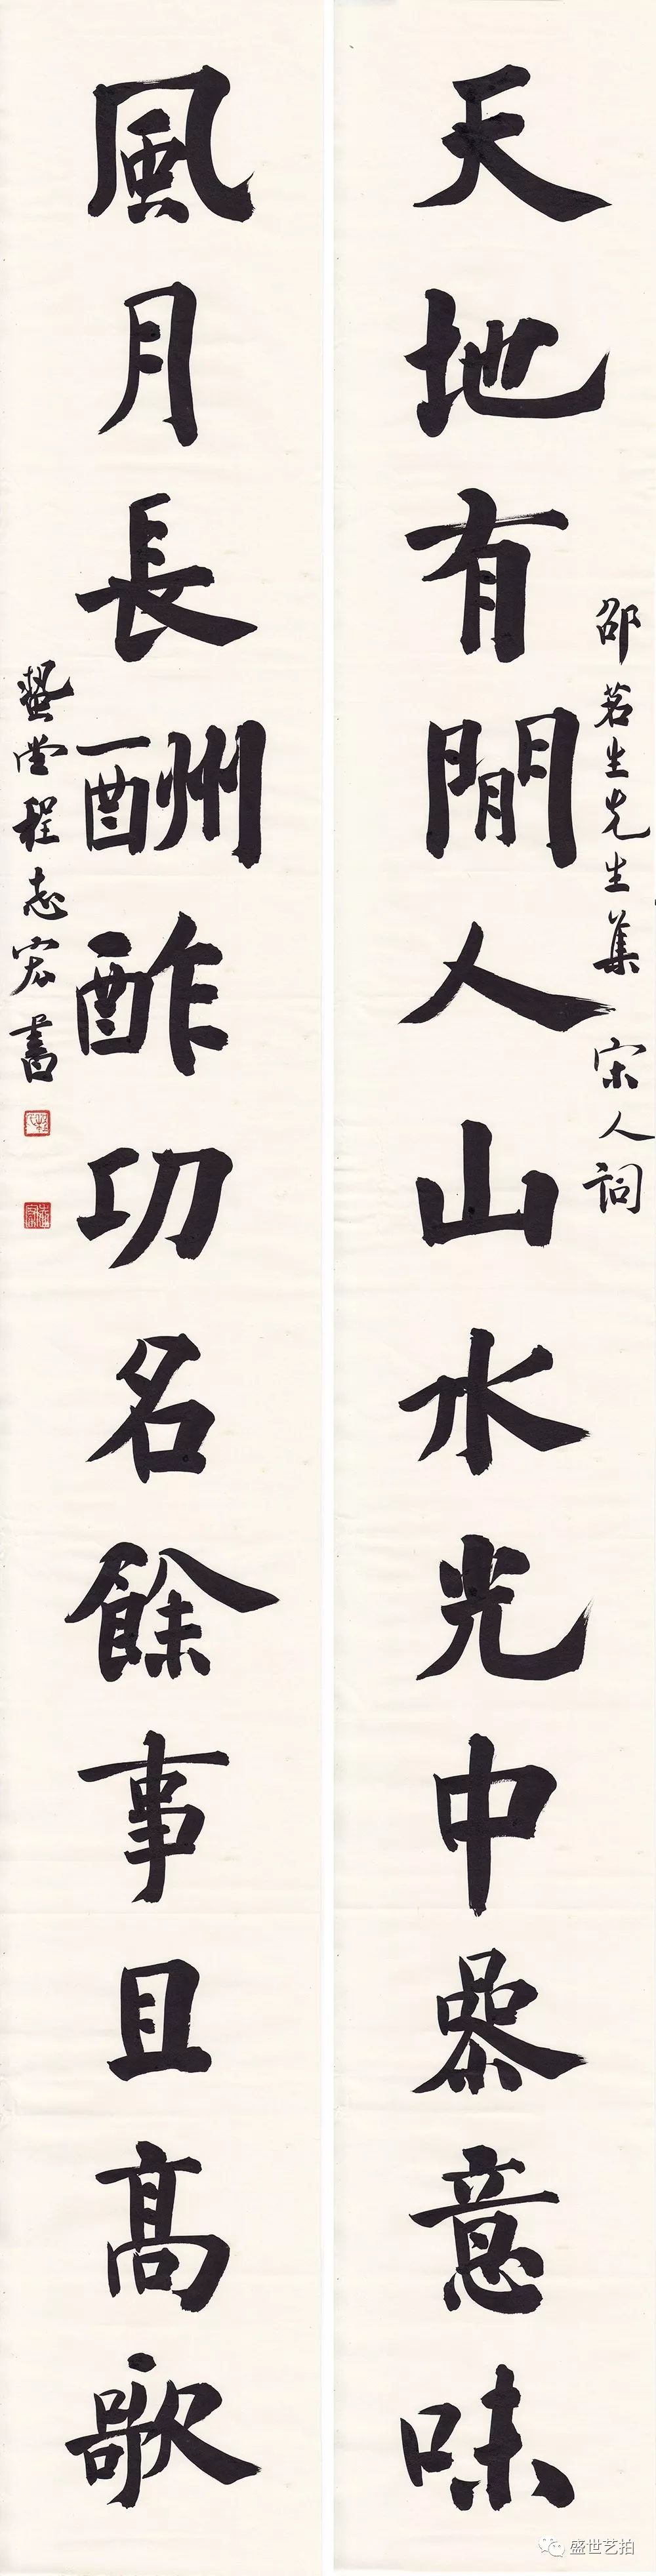 邵茗生先生集 宋人詞
天地有閒人山水光中參意味
風月長酬酢功名餘事且高歌
蟄堂程志宏書
盛世艺拍